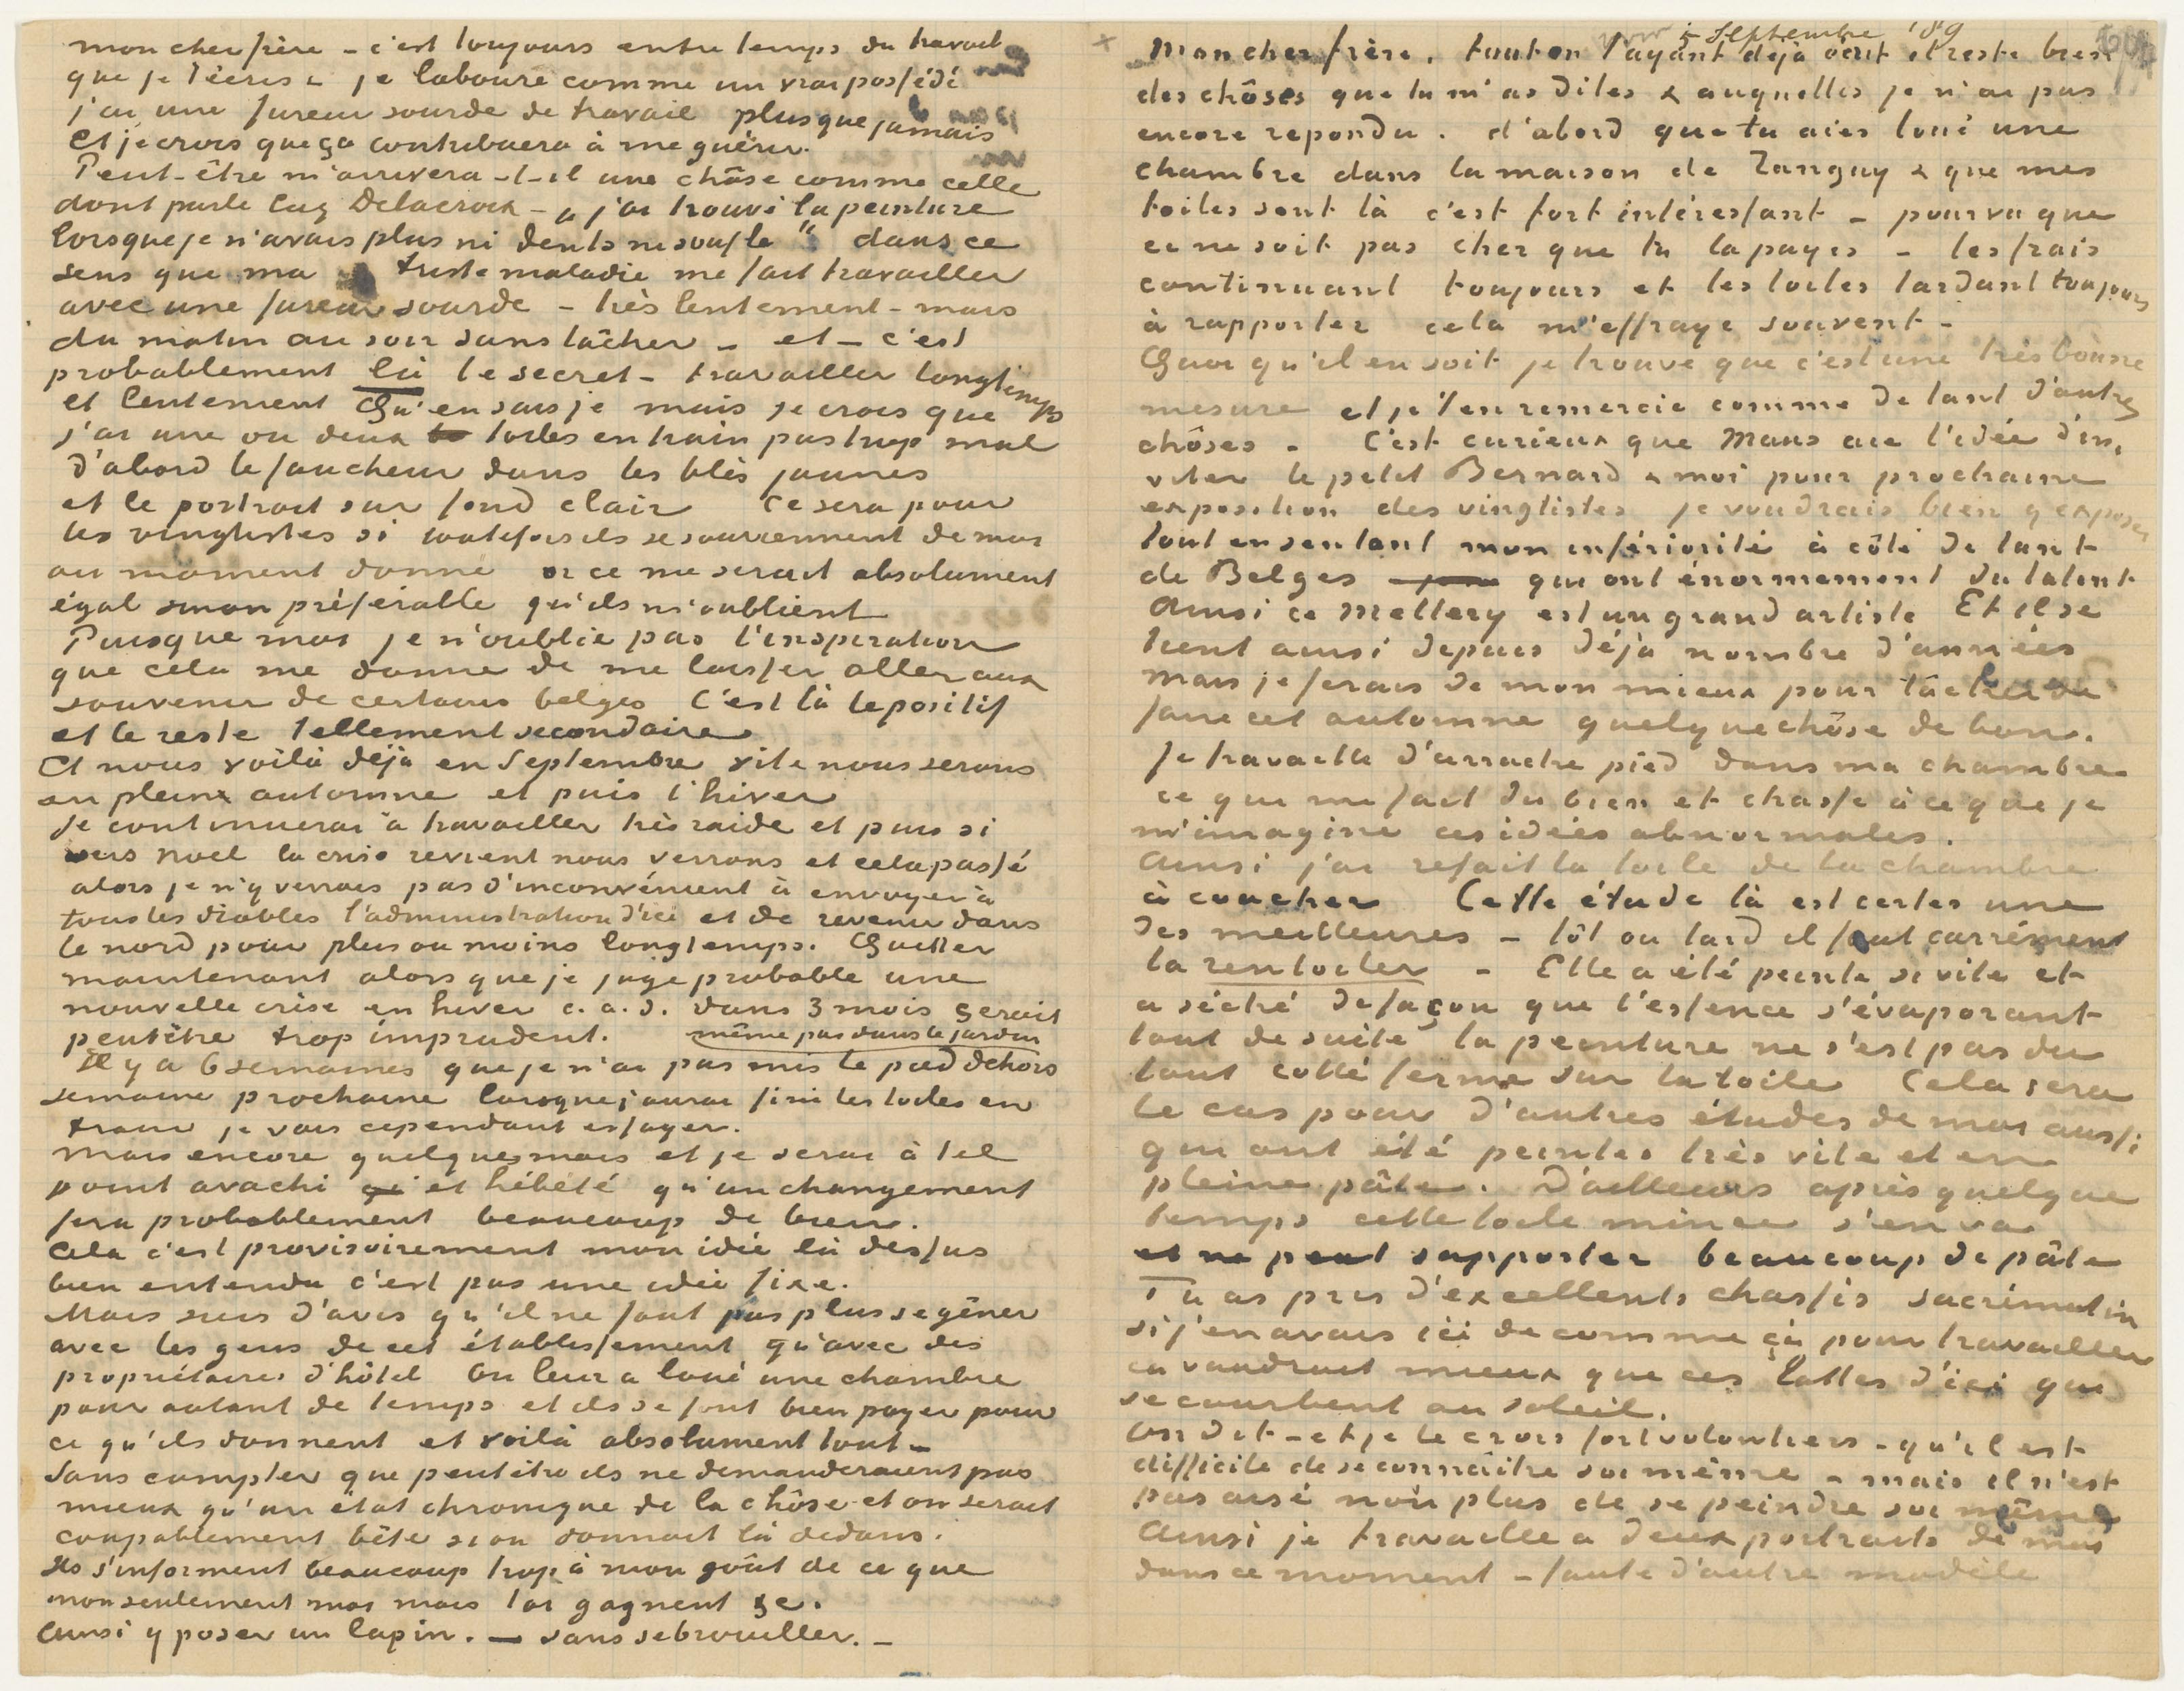 mon cher frère – c'est toujours entre temps du travail
que je t'écris – je laboure comme un vrai possédé
j'ai une fureur sourde de travail plus que jamais
Et je crois que ça contribuera à me guérir.
Peut-être m'arrivera-t-il une chôse comme celle
dont parle Eug Delacroix – „j'ai trouvé la peinture
lorsque je n'avais plus ni dents ni souffle“ dans ce
sens que ma triste maladie me fait travailler
avec une fureur sourde – très lentement – mais
du matin au soir sans lâcher – et – c'est
probablement là le secret – travailler longtemps
et lentement Qu'en sais je mais je crois que
j'ai une ou deux toiles en train pas trop mal
d'abord le faucheur dans les blés jaunes
et le portrait sur fond clair ce sera pour
les vingtistes si toutefois ils se souviennent de moi
au moment donné or ce me serait absolument
égal sinon préférable qu'ils m'oublient
Puisque moi je n'oublie pas l'inspiration
que cela me donne de me laisser aller aux
souvenir de certains belges C'est là le positif
et le reste tellement secondaire
Et nous voilà déjà en Septembre vite nous serons
en plein automne et puis l'hiver
Je continuerai à travailler très raide et puis si
vers noel la crise revient nous verrons et cela passé
alors je n'y verrais pas d'inconvénient à envoyer à
tous les diables l'administration d'ici et de revenir dans
le nord pour plus ou moins longtemps. Quitter
maintenant alors que je juge probable une
nouvelle crise en hiver c.a.d. dans 3 mois serait
peutêtre trop imprudent. même pas dans le jardin
Il y a 6 semaines que je n'ai pas mis le pied dehors
semaine prochaine lorsque j'aurai fini les toiles en
train je vais cependant essayer.
Mais encore quelques mois et je serai à tel
point avachi et hébété qu'un changement
fera probablement beaucoup de bien.
Cela c'est provisoirement mon idée là dessus
bien entendu c'est pas une idée fixe.
Mais suis d'avis qu'il ne faut pas plus se gêner
avec les gens de cet établissement qu'avec des
propriétaires d'hôtel On leur a loué une chambre
pour autant de temps et ils se font bien payer pour
ce qu'ils donnent et voilà absolument tout –
Sans compter que peutêtre ils ne demanderaient pas
mieux qu'un état chronique de la chôse et on serait
coupablement bête si on donnait là dedans.
Ils s'informent beaucoup trop à mon goût de ce que
non seulement moi mais toi gagnent &c.
Ainsi y poser un lapin. – sans se brouiller. –
Septembre '89
Mon cher frère, tout en t'ayant déjà écrit il reste bien
des chôses que tu m'as dites & auquelles je n'ai pas
encore repondu. d'abord que tu aies loué une
chambre dans la maison de Tanguy & que mes
toiles sont là c'est fort intéressant – pourvu que
ce ne soit pas cher que tu la payes – les frais
continuant toujours et les toiles tardant toujours
à rapporter cela m'effraye souvent –
Quoi qu'il en soit je trouve que c'est une très bonne
mesure et je t'en remercie comme de tant d'autres
chôses – C'est curieux que Maus aie l'idée d'in,
viter le petit Bernard & moi pour prochaine
exposition des vingtistes je voudrais bien y exposer
tout en sentant mon infériorité à côté de tant
de Belges qui ont énormement du talent
Ainsi ce Mellery est un grand artiste Et il se
tient ainsi depuis déjà nombre d'années
Mais je ferais de mon mieux pour tâcher de
faire cet automne quelque chôse de bon.
Je travaille d'arrache pied dans ma chambre
ce qui me fait du bien et chasse à ce que je
m'imagine ces idées abnormales.
Ainsi j'ai refait la toile de la chambre
à coucher Cette étude là est certes une
des meilleures – tôt ou tard il faut carrément
la rentoiler – Elle a été peinte si vite et
a séché de façon que l'essence s'évaporant
tout de suite la peinture ne s'est pas du
tout collé ferme sur la toile Cela sera
le cas pour d'autres études de moi aussi
qui ont été peintes très vite et en
pleine pâte. D'ailleurs après quelque
temps cette toile mince s'en va
et ne peut supporter beaucoup de pâte
Tu as pris d'excellents chassis sacrématin
si j'en avais ici de comme ça pour travailler
ca vaudrait mieux que ces lattes d'ici qui
se courbent au soleil.
On dit – et je le crois fort volontiers – qu'il est
difficile de se connaître soi même – mais il n'est
pas aisé non plus de se peindre soi même
Ainsi je travaille a deux portraits de moi
dans ce moment – faute d'autre modèle